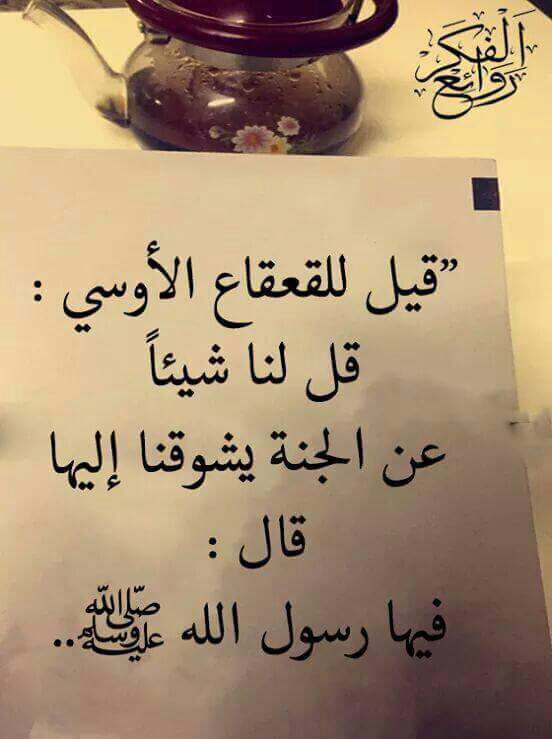 روائع الفكر
”قيل للقعقاع الأوسي :
قل لنا شيئاً
عن الجنة يشوقنا إليها
قال :
فيها رسول الله ﷺ..